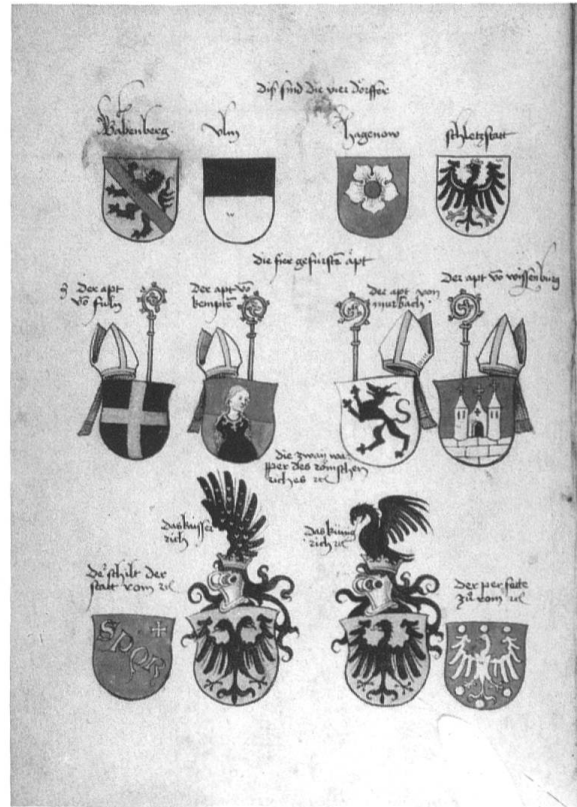 diß sind die vier dörffer
Babenberg
vlm
hagenow
schletzstatt
die fier gefürsten äpt
der apt
vo fuln
der apt vo
kempten
der apt von
murbach
der apt vo wissenburg
die zway wa
pper des römschen
riches
das kaisser
rich
das küng
rich
der schilt der
statt rom
der per seitte
zu rom
SPQR